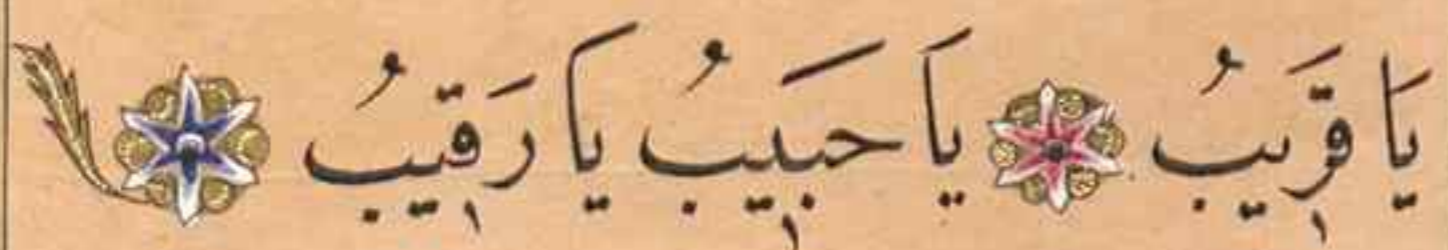 يَا قَرِيبُ يَا حَبِيبُ يَا رَقِيبُ